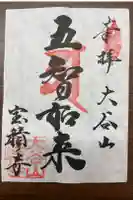 奉拝 大谷山
五智如来
宝積寺